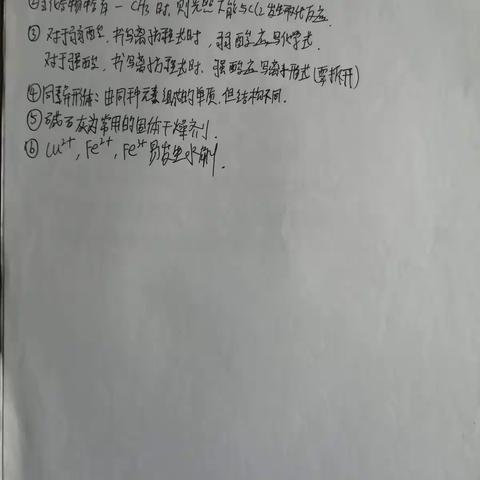 ②当化合物中含有 - CH₃ 时,则光照才能与Cl₂发生取代反应.
③ 对于弱酸,书写离子方程式时,弱酸应写化学式.
对于强酸,书写离子方程式时,强酸应写离子形式(要拆开)
④同素异形体:由同种元素组成的单质,但结构不同.
⑤碱石灰为常用的固体干燥剂.
⑥ Cu²⁺, Fe²⁺, Fe³⁺易发生水解.